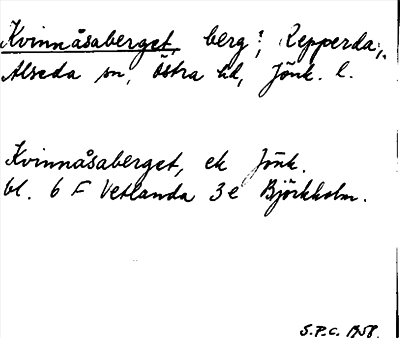 Kvinnåsaberget, berg; Repperda,
Alseda sn, Östra hd, Jönk. l.
Kvinnåsaberget, ek Jönk.
bl. 6 F Vetlanda 3e Björkholm.
S.P.C. 1958.